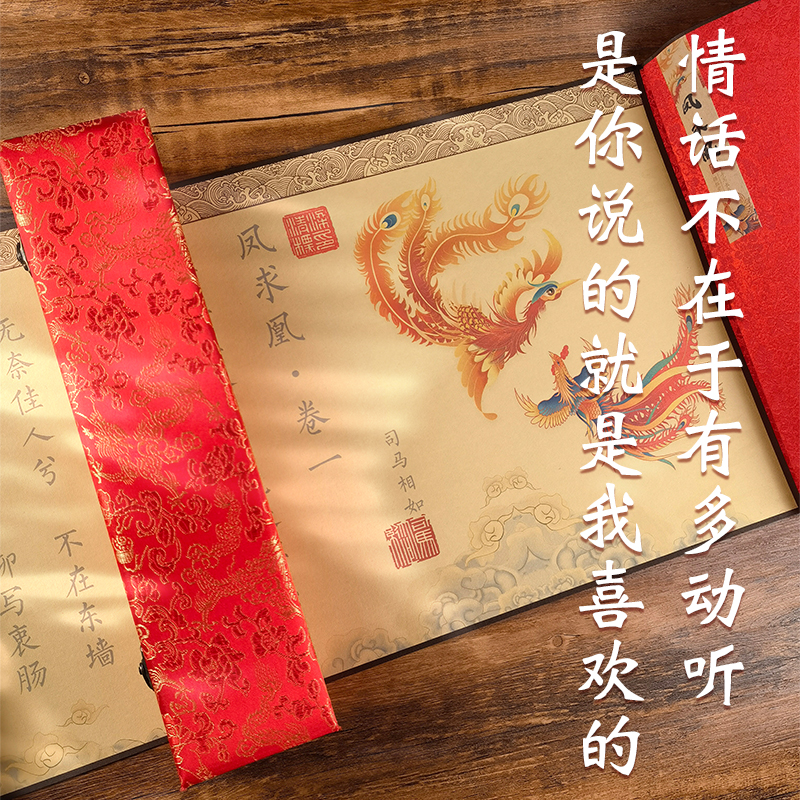 情话不在于有多动听
是你说的就是我喜欢的
凤求凰·卷一
司马相如
不在东墙
无奈佳人兮
写衷肠